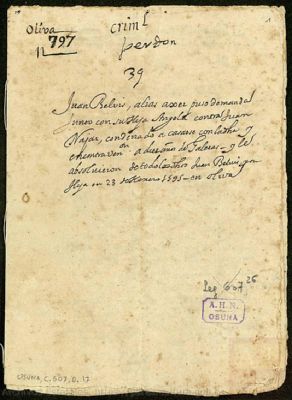 Oliva
n 797
criml
perdon
39
1
Juan Belvis, alias axer puso demanda
junto con su Hija Angela contra Juan
Najar, condenado a casarse con la dha y
en a diez años de Galeras - y les
absolvieron de todo los dhos Juan Belvis y su
Hija en 23 de Enero 1595 - en oliva
Leg 607 26
A. H. N.
OSUNA
OSUNA, C. 607, D. 17